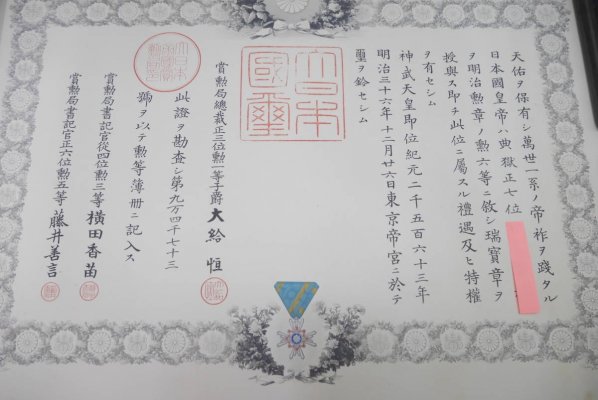 天佑ヲ保有シ萬世一系ノ帝祚ヲ踐タル
日本國皇帝ハ典獄正七位
ヲ明治勲章ノ勲六等ニ敘シ瑞寶章ヲ
授與ス即チ此位ニ屬スル禮遇及ヒ特權
ヲ有セシム
神武天皇即位紀元二千五百六十三年
明治三十六年十二月廿六日東京帝宮ニ於テ
璽ヲ鈐セシム
大日本
國璽
賞勲局總裁正三位勲一等子爵大給恒
此證ヲ勘査シ第九万四千七十三
號ヲ以テ勲等簿冊ニ記入ス
賞勲局書記官從四位勲三等横田香苗
賞勲局書記官正六位勲五等藤井善言